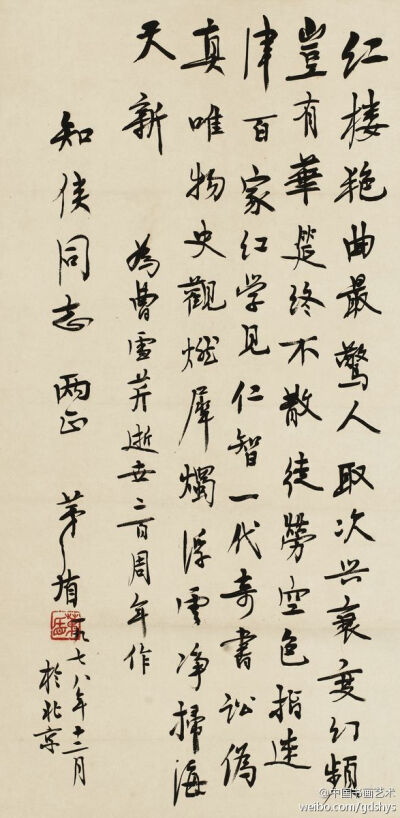 红楼艳曲最驚人取次兴衰变幻频
豈有華筵终不散徒勞空色指迷
津百家红学见仁智一代奇書讼偽
真唯物史觀燃犀燭浮雲净掃海
天新
為曹雪芹逝世二百周年作
知侠同志两正 茅盾
一九七八年十二月
於北京
茅盾
@中国书画艺术
weibo.com/gdshys